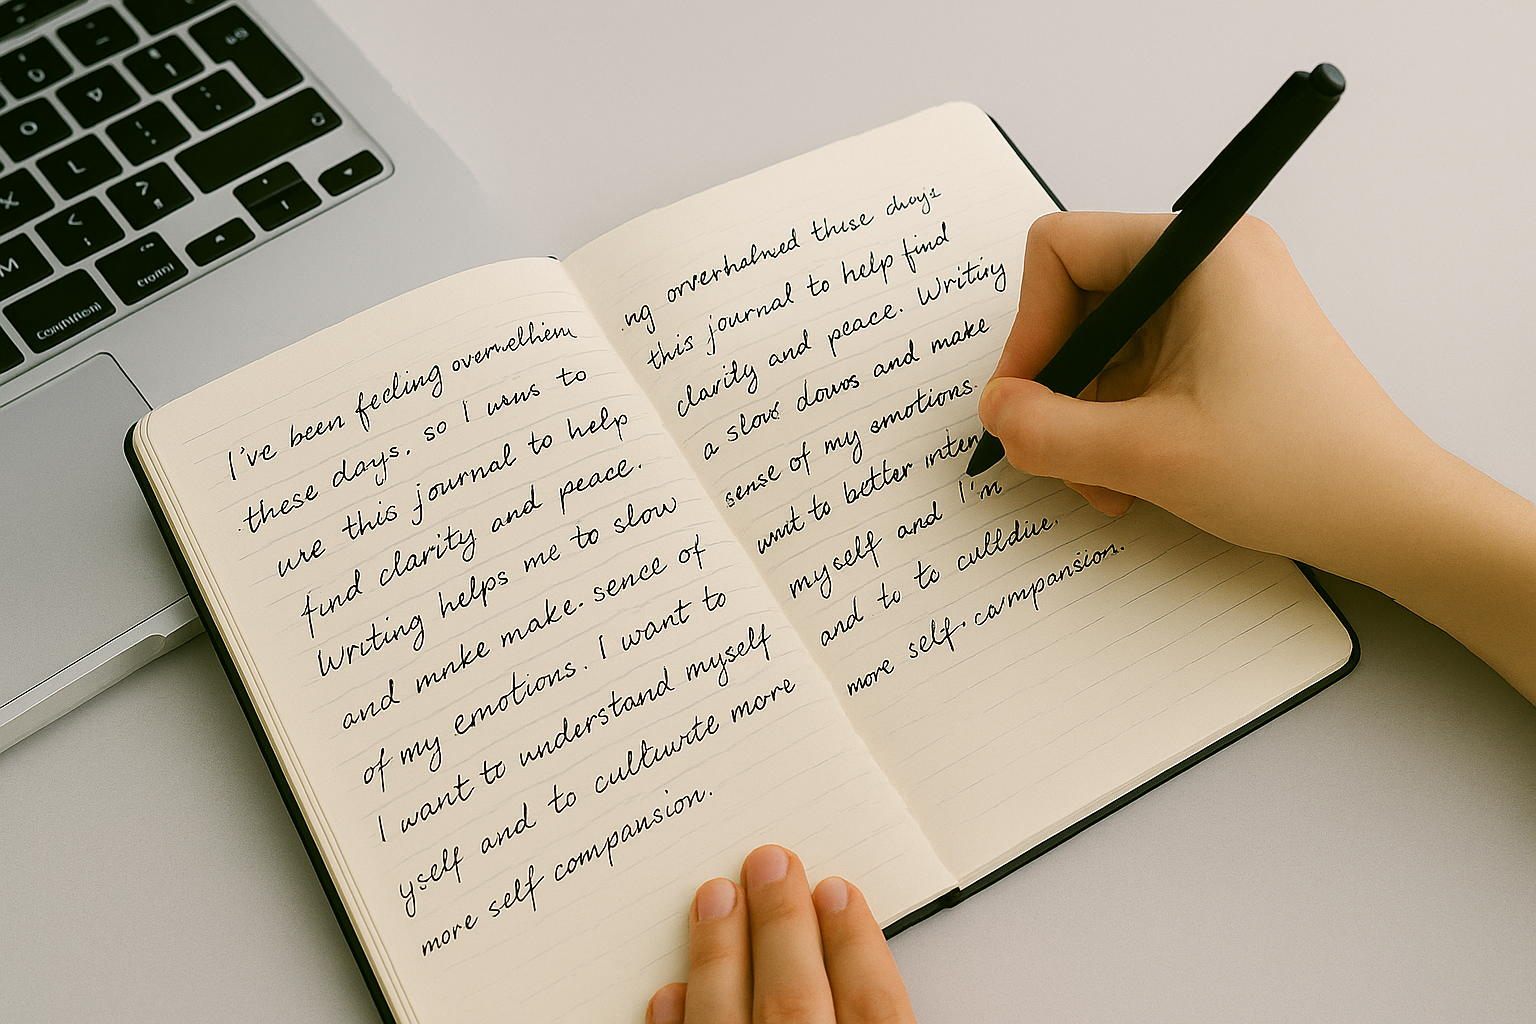 I've been feeling overmelhiem
these days, so I wans to
ure this journal to help
find clarity and peace.
Writing helps me to slow
and mnke make. sence of
of my emotions. I want to
I want to understand myself
yself and to cultiurte more
more self compansion.
ng orverhalmed thise days
this journal to help find
clavity and peace. Writiry
a slow douns and make
sense of my emotions.
want to better inten
myself and I'm
and to to culldiue.
more self. campansion.